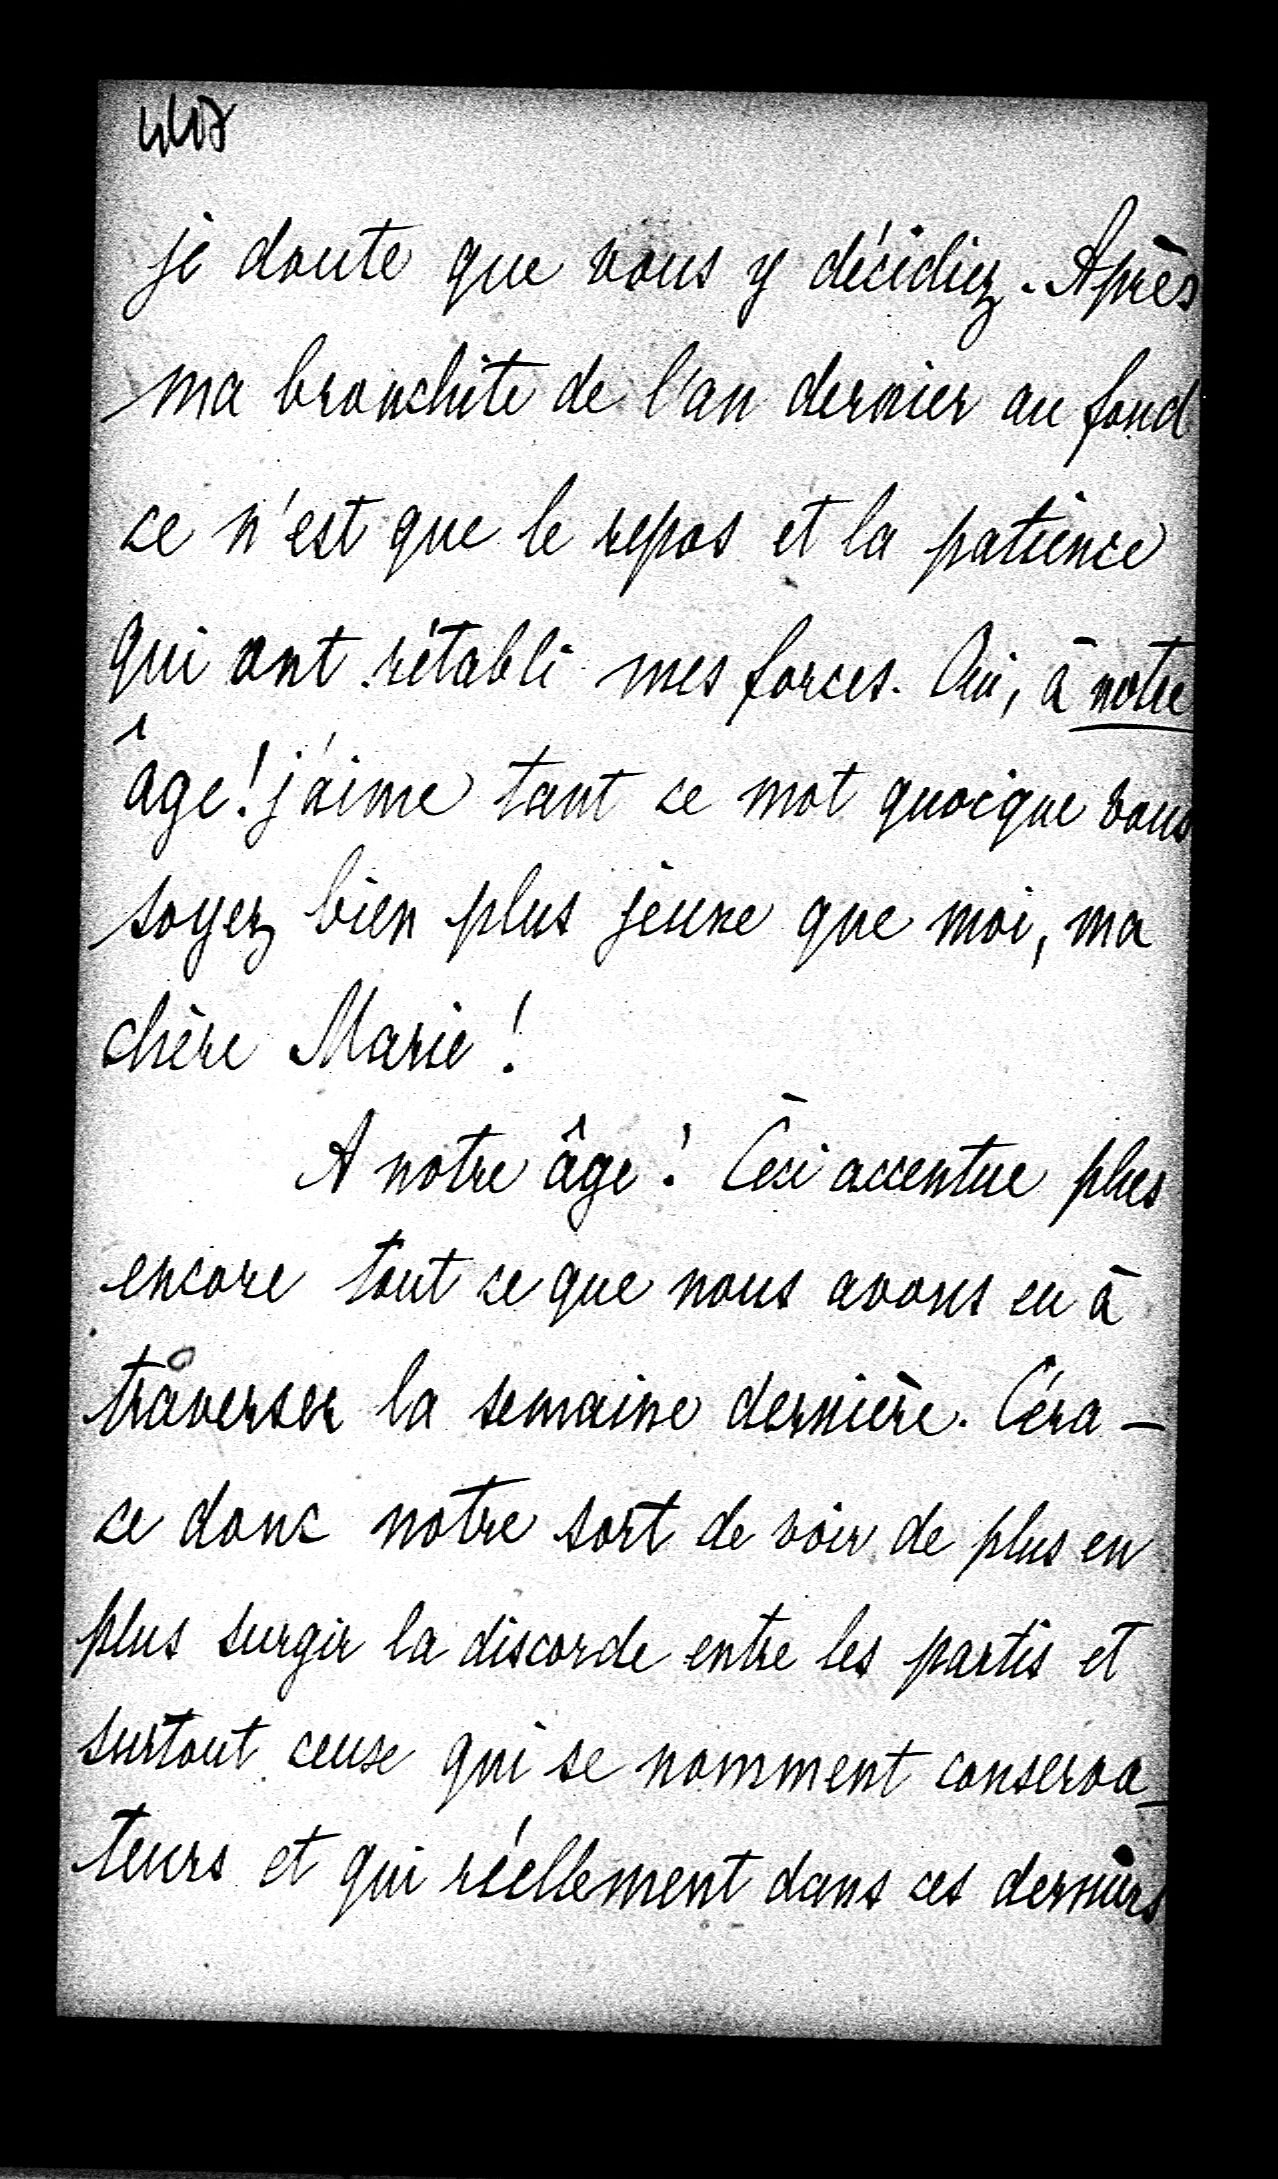 je doute que vous y décidiez. Après
ma bronchite de l'an dernier au fond
ce n'est que le repos et la patience
qui ont rétabli mes forces. Oui, à notre
âge! j'aime tant ce mot quoique vous
soyez bien plus jeune que moi, ma
chère Marie!
A notre âge! Ceci accentue plus
encore tout ce que nous avons eu à
traverser la semaine dernière. Céra-
ce donc notre sort de voir de plus en
plus surgir la discorde entre les partis et
surtout ceux qui se nomment conserva-
teurs et qui réellement dans ces derniers